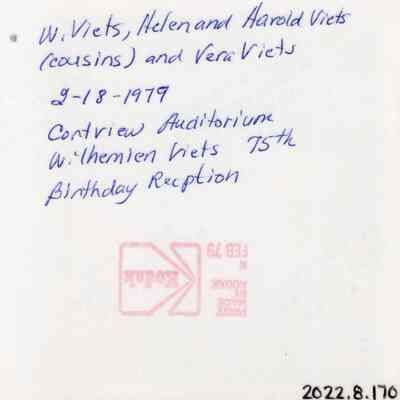 W. Viets, Helen and Harold Viets
(cousins) and Vera Viets
2-18-1979
Contview Auditorium
Wilhemien Viets 75th
Birthday Recption
Kodak
FEB 79
2022.8.170